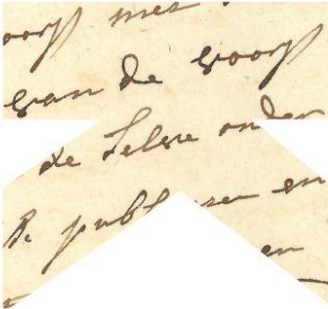 voorß met
van de voorß
de selve onder
de publ en
en